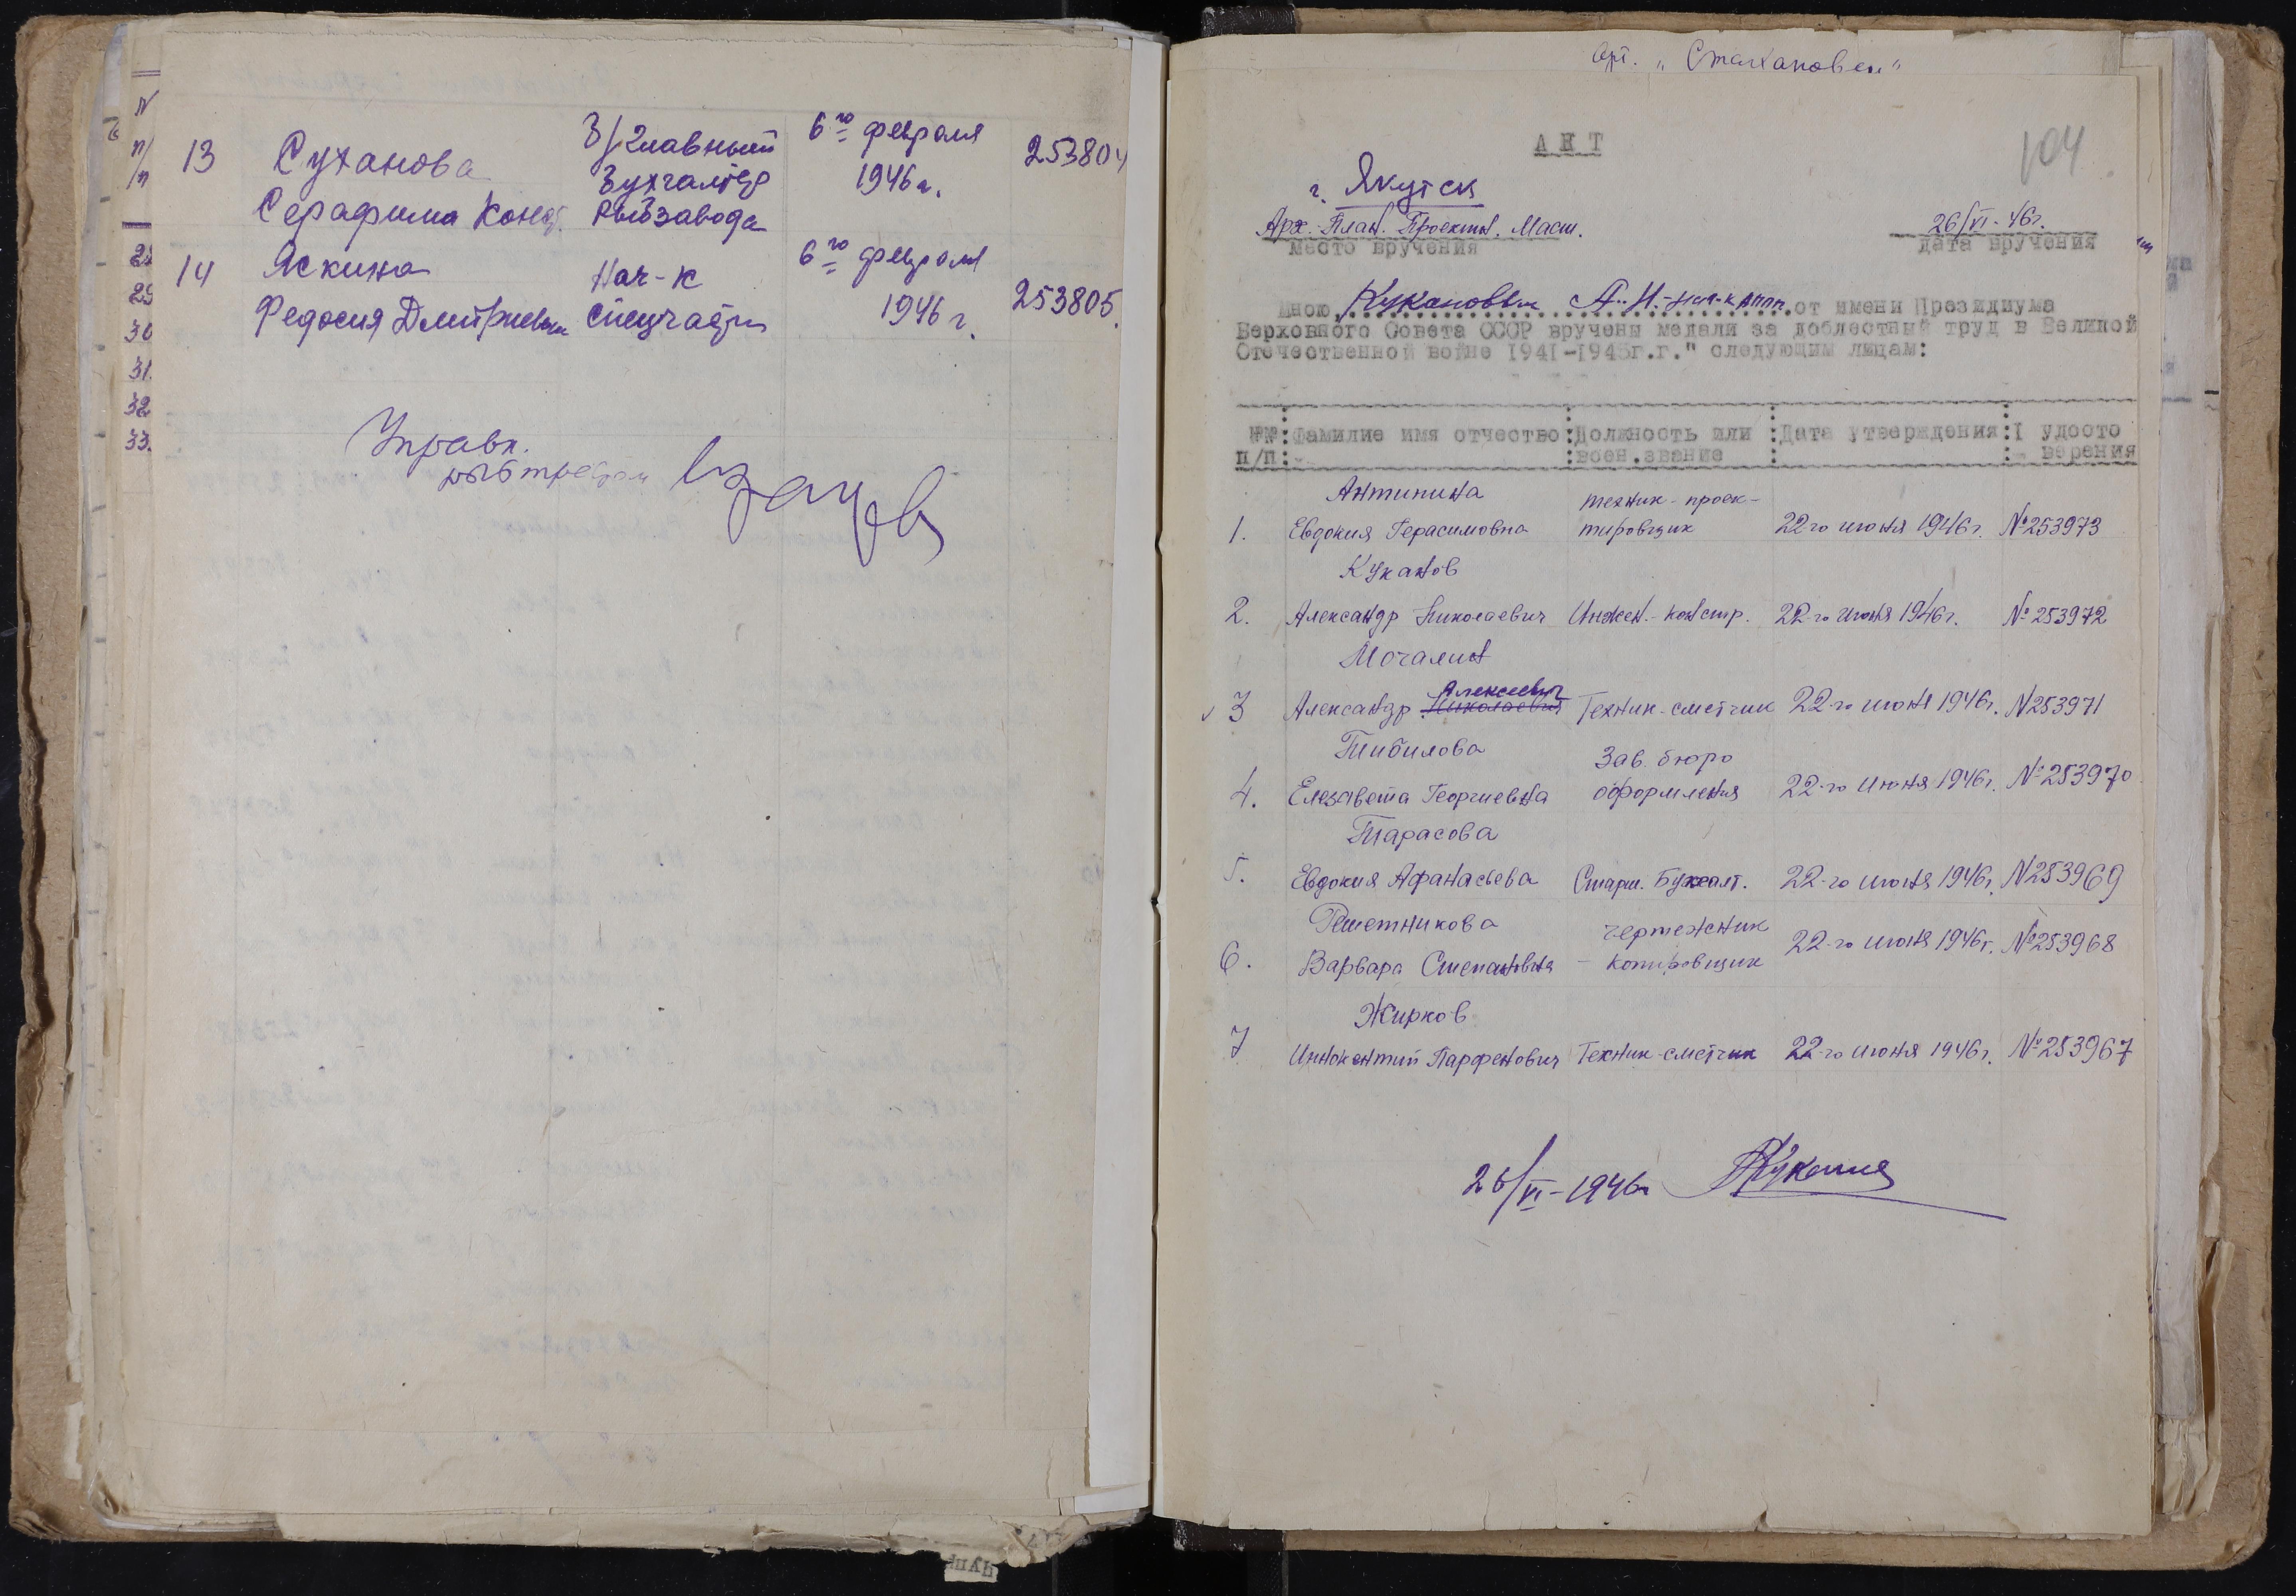 13 Суханова З/Главный 6го февраля 253804
Бухгалтер 1946 г.
Серафима Конст. Рыбзавода
14 Яскина Нач-к 6го февраля
Федосия Дмитриевн Спецчасти 1946 г. 253805
Управл.
рыбтрестом
N
п/
/п
28
29
30
31.
32
33.
Арт. „Стахановец"
104
АКТ
г. Якутск
Арх. План. Проектн. Маст. 26/VI-46г.
место вручения дата вручения
Мною Кукановым А.Н. - нач-к АППМ от имени Президиума
Верховного Совета СССР вручены медали за доблестный труд в Великой
Отечественной войне 1941-1945г.г." следующим лицам:
№№ Фамилие имя отчество Должность или Дата утверждения удосто
п/п воен.звание верения
Антипина техник-проек-
1. Евдокия Герасимовна тировщик 22-го июня 1946г. №253973
Куканов
2. Александр Николаевич Инжен.-констр. 22-го июня 1946г. №253972
Мочалин
Алексеевич
3 Александр Николаевич Техник-сметчик 22-го июня 1946г. N253971
Тибилова Зав. бюро
4. Елезавета Георгиевна оформления 22-го июня 1946г. №253970
Тарасова
5. Евдокия Афанасьева Старш. Бухгалт. 22-го июня 1946г. N253969
Решетникова чертежник
6. Варвара Степановна - копировщик 22-го июня 1946г. №253968
Жирков
7 Иннокентий Парфенович Техник-сметчик 22-го июня 1946г. №253967
26/VI-1946г